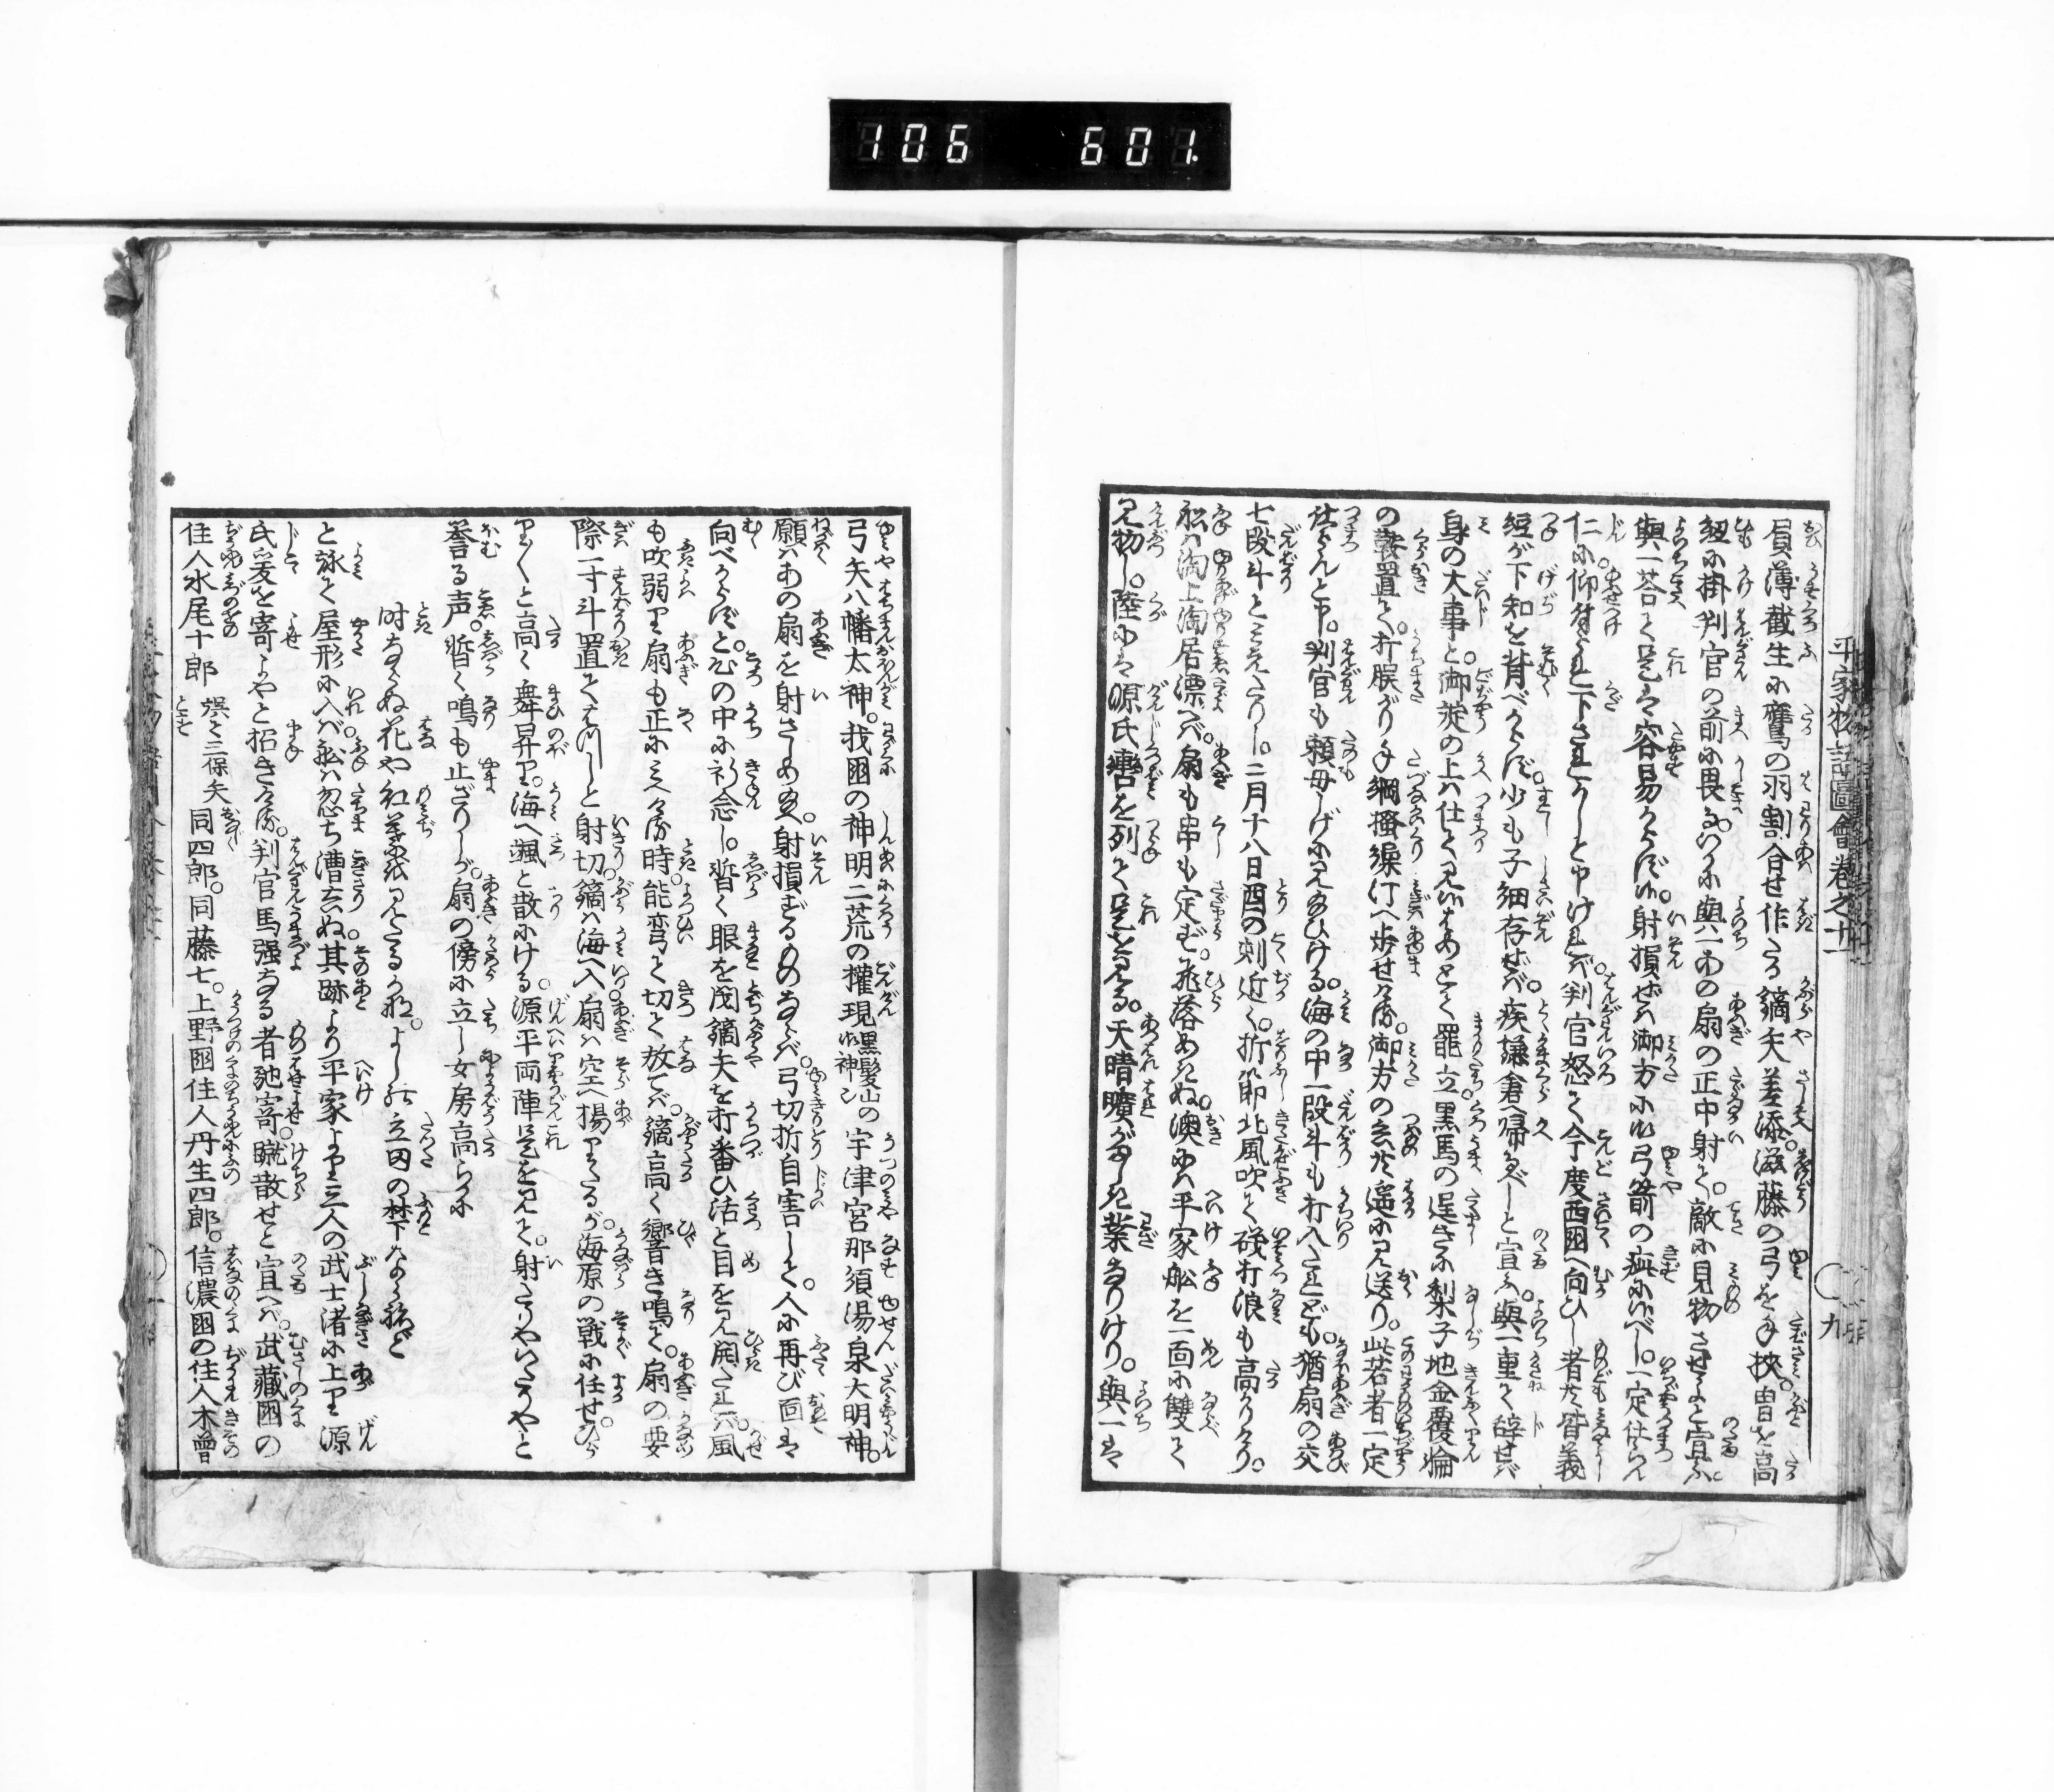 106 601.
平家物語圖會巻之十二
九
負薄截生に鷹の羽割合せ作たる鏑矢差添。滋藤の弓を手挟。冑を高
紐に掛判官の前に畏る。いかに與一あの扇の正中射て。敵に見物させよと宣ふ。
與一荅て是は容易からず候。射損ぜば御方に候弓箭の疵に候べし。一定仕らん
仁に仰付られ下さるべしと申ければ。判官怒て今度西国へ向ひし者共皆義
經が下知を背べからず。少も子細存ぜば。疾鎌倉へ帰るべしと宣ふ。與一重て辞せば
身の大事と。御諚の上は仕て見候はめとて罷立。黒馬の逞きに梨子地金覆倫
の鞍置て。打跨がり手綱掻繰汀へ歩せける。御方の兵共遥に見送り。此若者一定
仕らんと申。判官も頼母しげに見給ひける。海の中一段斗も打入たれども。猶扇の交
七段斗とみえたりし。二月十八日酉の刻近く。折節北風吹て磯打浪も高かりけり。
舩は淘上淘居漂へば。扇も串も定ず。飛落めきぬ。澳には平家舩を一面に雙て
見物し。陸には源氏轡を列て是を見る。天晴曠がましき業なりけり。與一は
弓矢八幡太神。我国の神明二荒の權現黒髪山の御神也宇津宮那須湯泉大明神。
願はあの扇を射させ給へ。射損ずるものならば。弓切折自害して。人に再び面は
向べからずと。心の中に祈念し。暫く眼を閉鏑矢を打番ひ活と目を見開たれば。風
も吹弱り扇も正にみえける時。能弯て切て放てば。鏑高く響き鳴て。扇の要
際一寸斗置てひいふつと射切。鏑は海へ入扇は空へ揚りたるが。海原の戦に任せ。ひら
りくと高く舞昇り。海へ颯と散にける。源平両陣是を見て。射たりやいたりやと
誉る声。暫く鳴も止ざりしが。扇の傍に立し女房高らかに
時ならぬ花や紅葉を見つるかな。よしの立田の林下ならねど
と詠て屋形に入ば。舩は忽ち漕去ぬ其跡より平家より三人の武士渚に上り源
氏爰を寄よやと招きける。判官馬强なる者馳寄蹴散せと宣へば。武藏国の
住人水尾十郎 同四郎。同藤七。上野国住人丹生四郎。信濃国の住人木曾